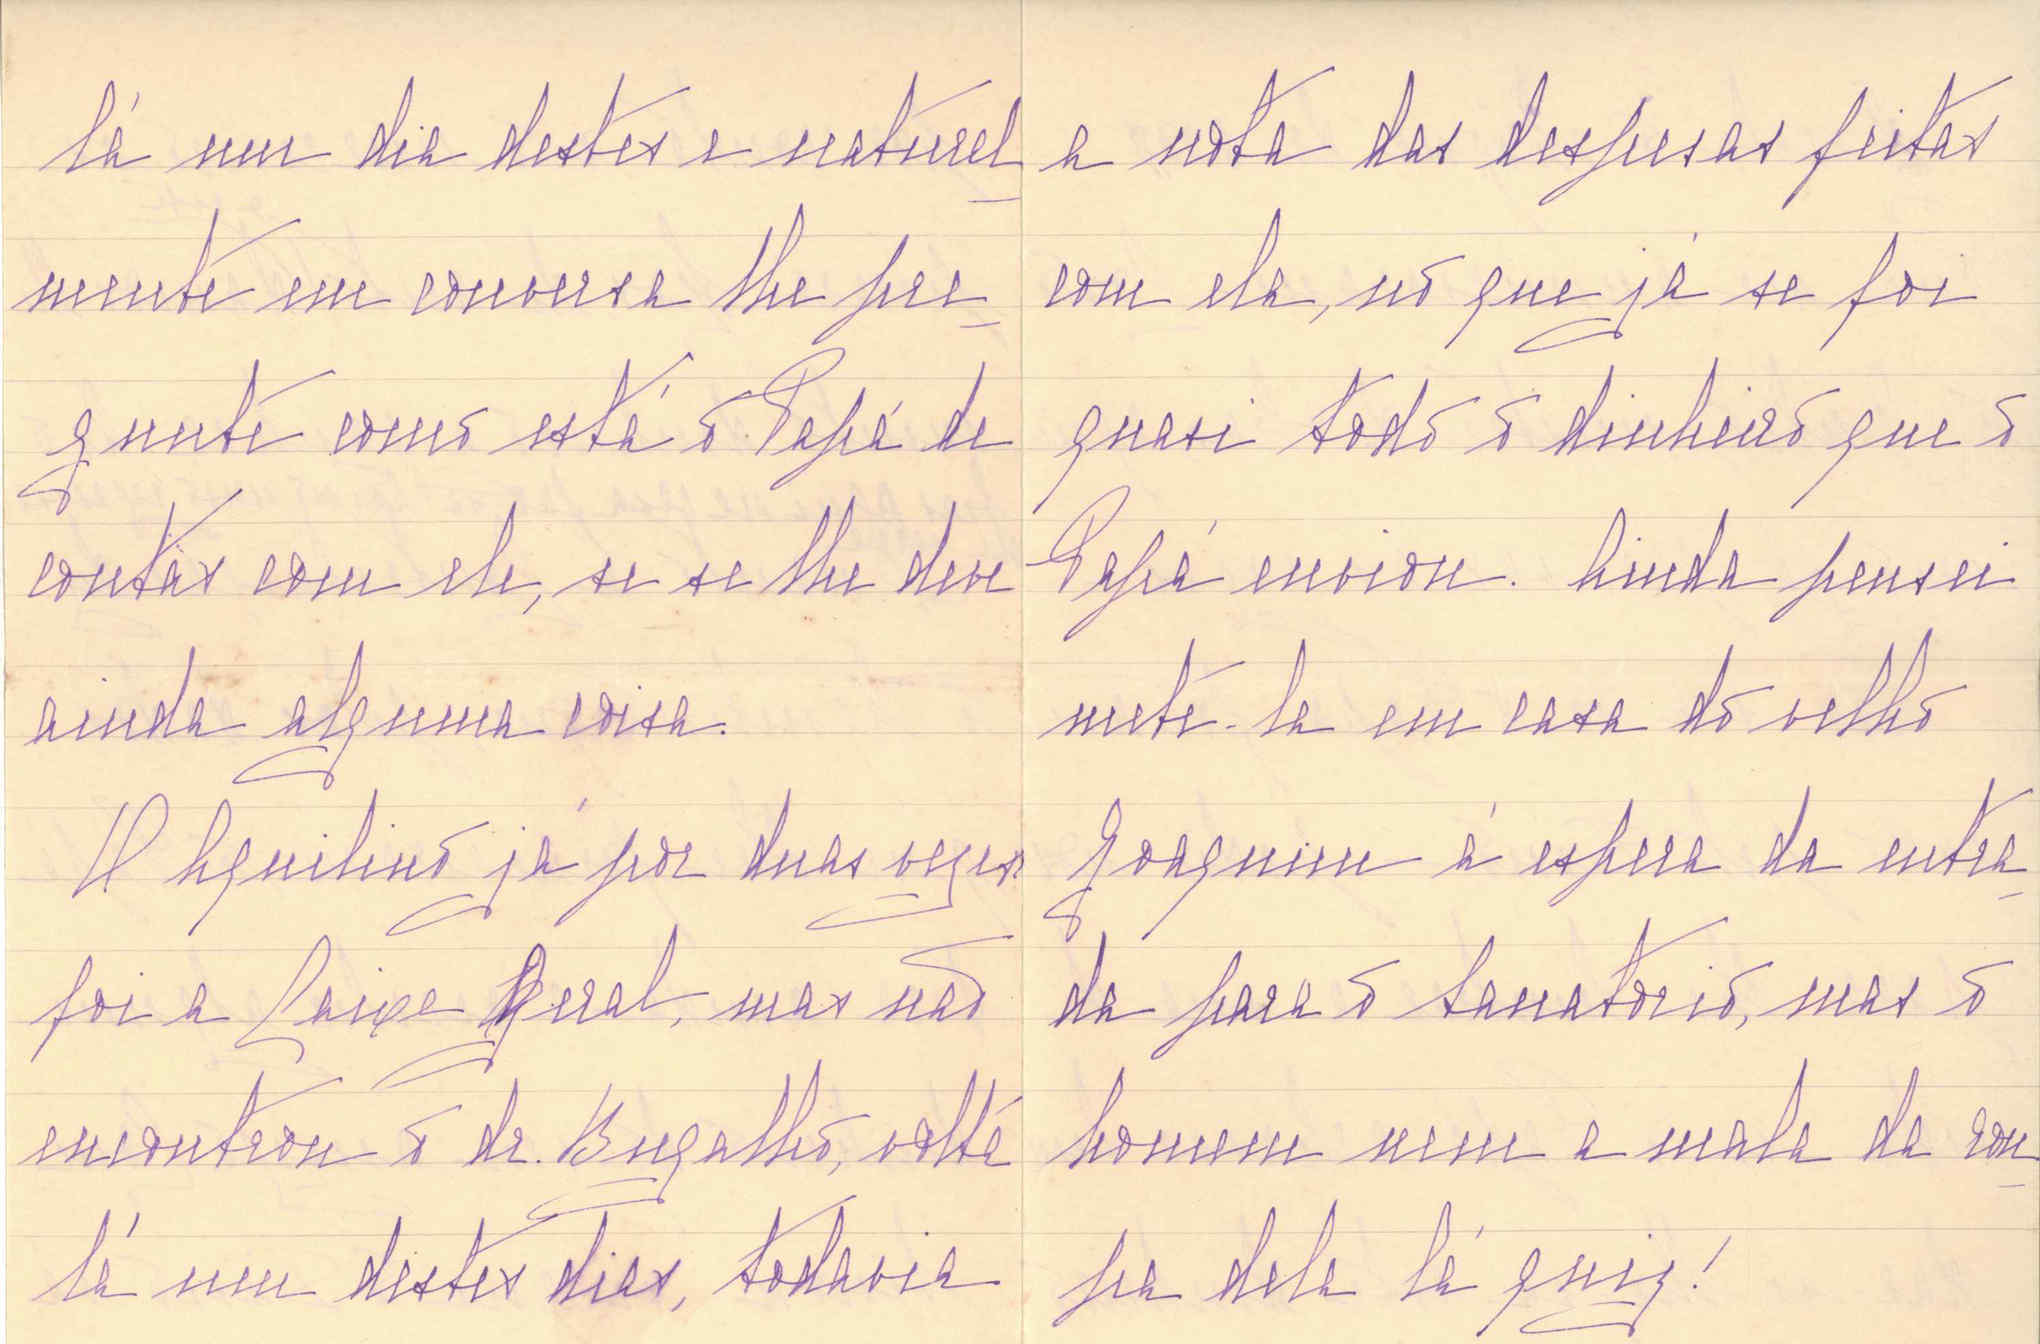 lá um dia destes e natural_
mente em conversa lhe per_
gunte como está o Papá de
contas com ele, se se lhe deve
ainda alguma coisa.
O Aquilino já por duas vezes
foi a Caixa Geral, mas não
encontrou o dr. Bugalho, volta
lá num destes dias, todavia
a nota das despesas feitas
com ela, no que já se foi
quasi todo o dinheiro que o
Papá enviou. Ainda pensei
mete-la em casa do velho
Joaquim á espera da entra_
da para o Sanatorio, mas o
homem nem a mala da rou_
pa dela lá quiz!